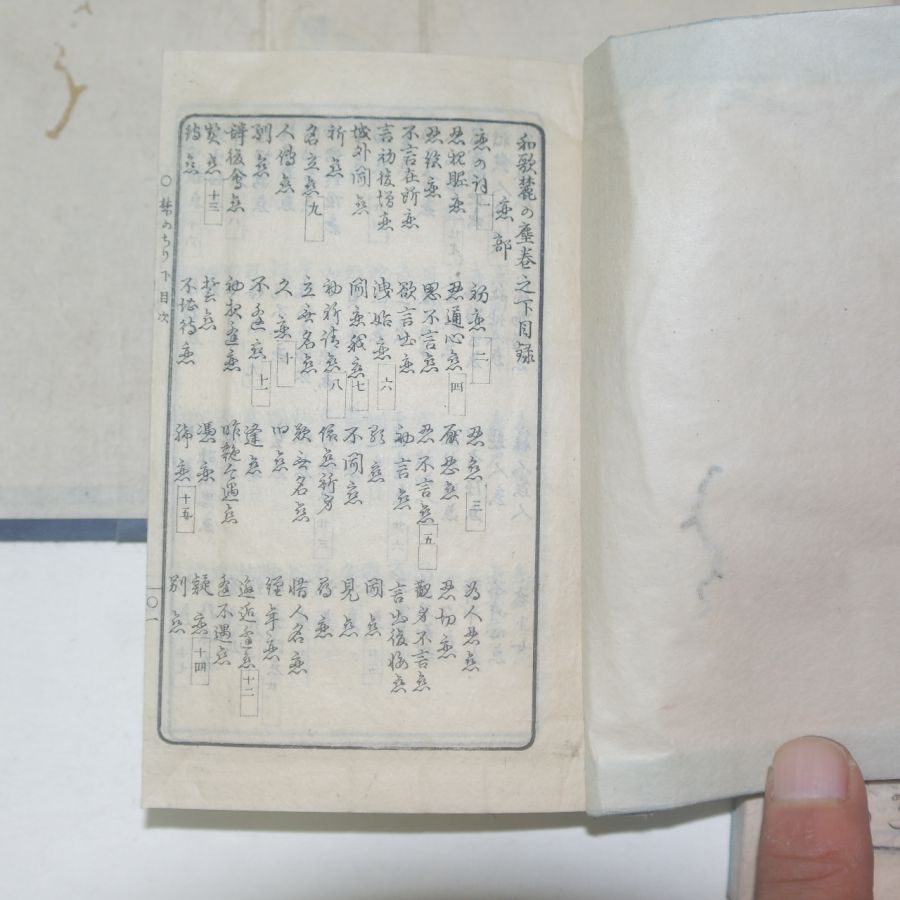 和歌麓の塵巻之下目録
恋部
恋の詞 一 初恋 二 忍恋 三 為人忍恋
忍親昵恋 忍通心恋 四 忍恋 忍切恋
忍絶恋 思不言恋 忍不言恋 五 観身不言恋
不言在所恋 欲言出恋 初言恋 言出後悔恋
言初後増恋 洩始恋 六 顕恋 聞恋
城外聞恋 聞恋我恋 七 不聞恋 見恋
祈恋 初祈請恋 八 依恋祈身 尋恋
名立恋 九 立無名恋 歎無名恋 惜人名恋
人傳恋 久恋 十 旧恋 經年恋
恋 不逢恋 十一 逢恋 邂逅逢恋 十二
後會恋 初逢恋 今遇恋 逢不遇恋
契恋 十三 誓恋 憑恋 疑恋 十四
待恋 不堪待恋 帰恋 十五 別恋
〇麓のちり下目次 一〇一